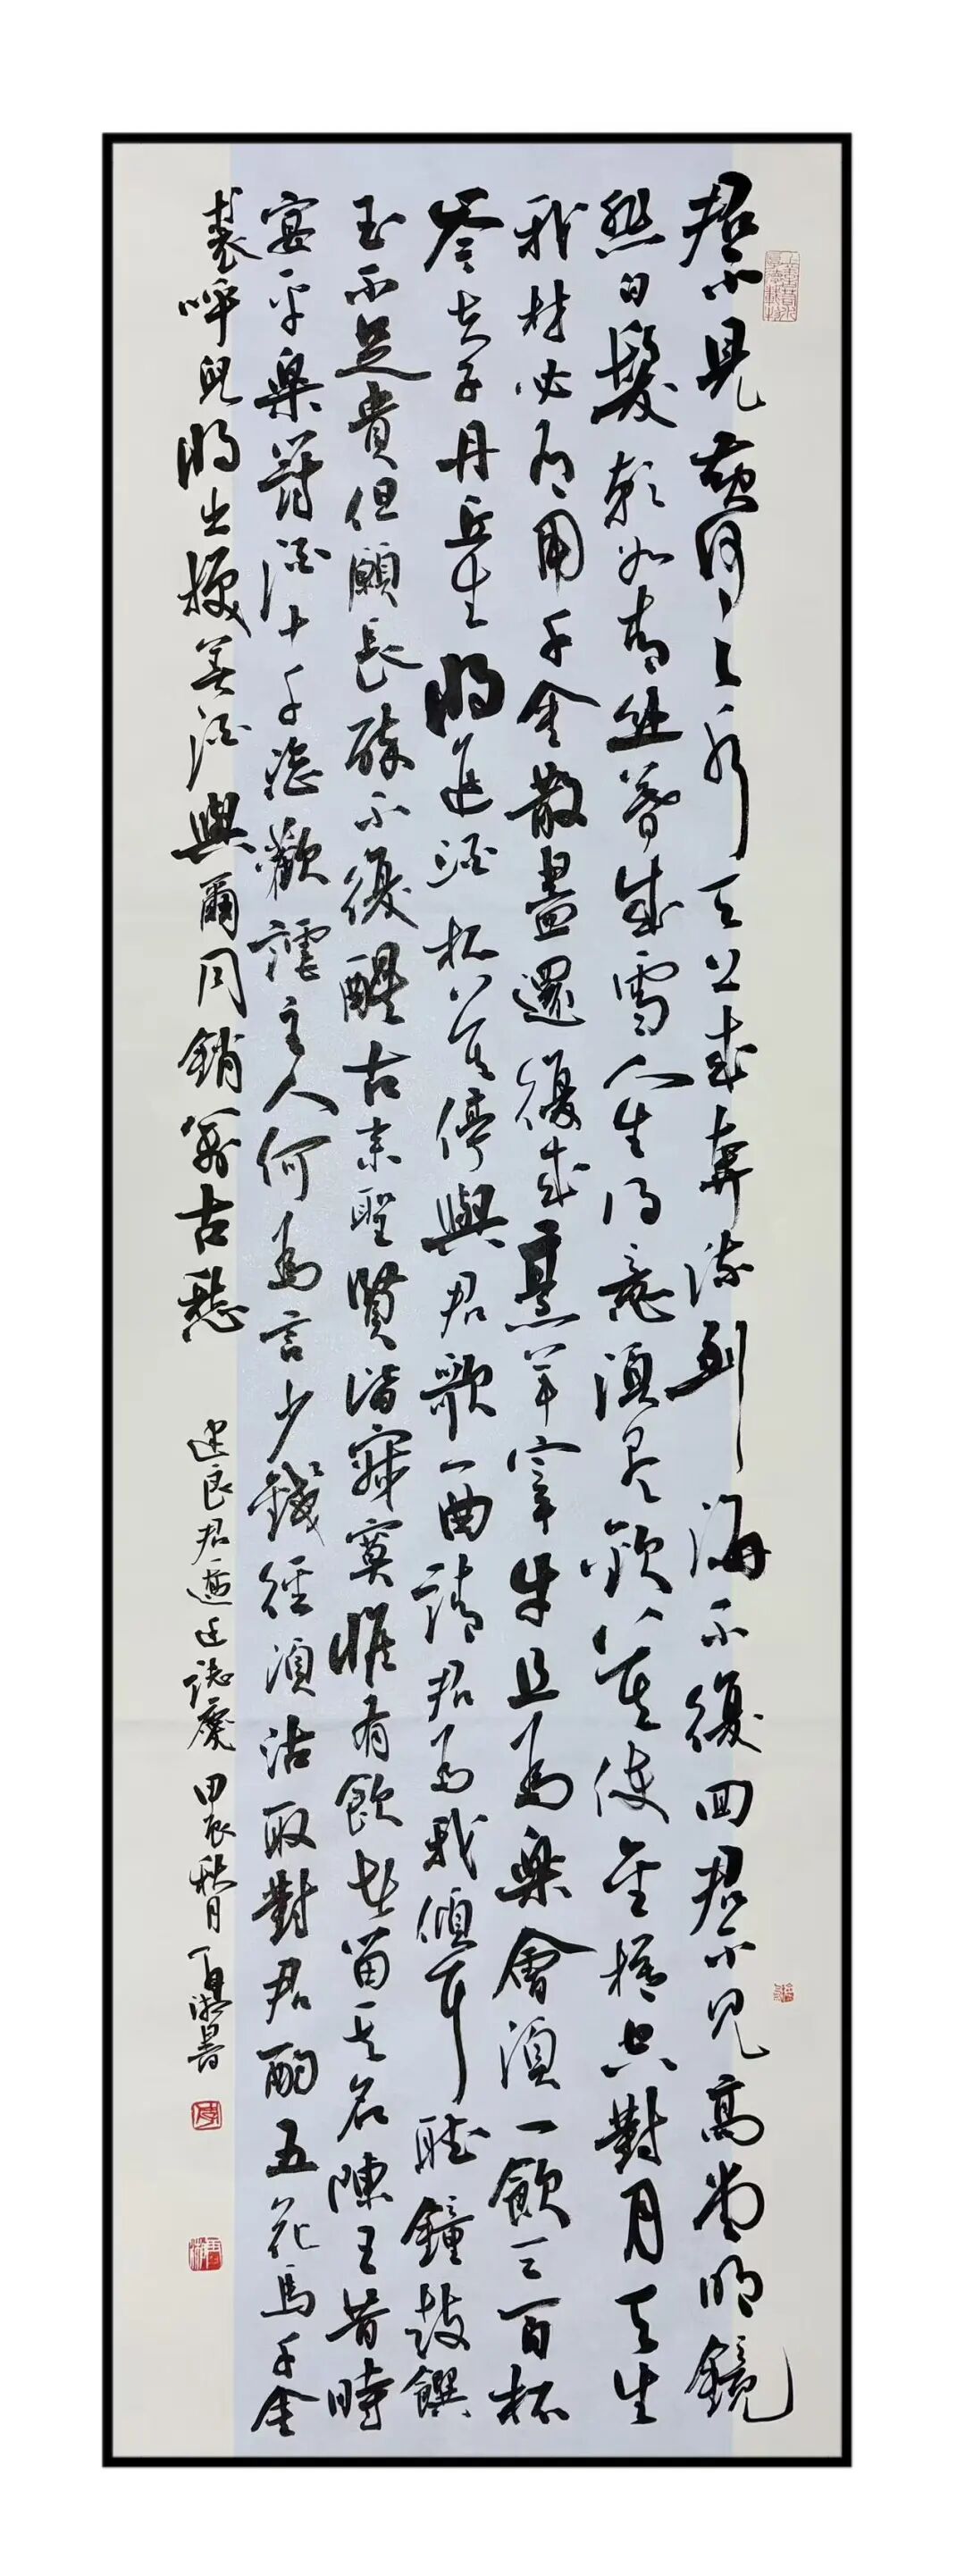 君不見黃河之水天上來奔流到海不復回君不見高堂明鏡
悲白髮朝如青絲暮成雪人生得意須盡歡莫使金樽空對月天生
我材必有用千金散盡還復來烹羊宰牛且為樂會須一飲三百杯
岑夫子丹丘生將進酒杯莫停與君歌一曲請君為我傾耳聽鐘鼓饌
玉不足貴但願長醉不復醒古來聖賢皆寂寞惟有飲者留其名陳王昔時
宴平樂斗酒十千恣歡謔主人何為言少錢徑須沽取對君酌五花馬千金
裘呼兒將出換美酒與爾同銷萬古愁 建良君喬迁誌慶 甲辰秋月 書